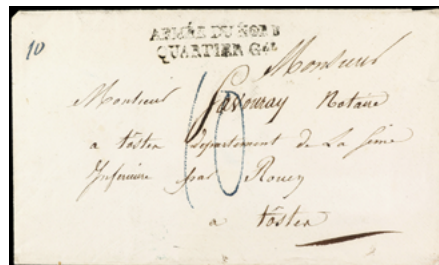 10
ARMÉE DU NORD
QUARTIER Gal
Monsieur
Monsieur Notaire
a tôster departement de La Seine
Inferieure par Rouen
10
a tôster